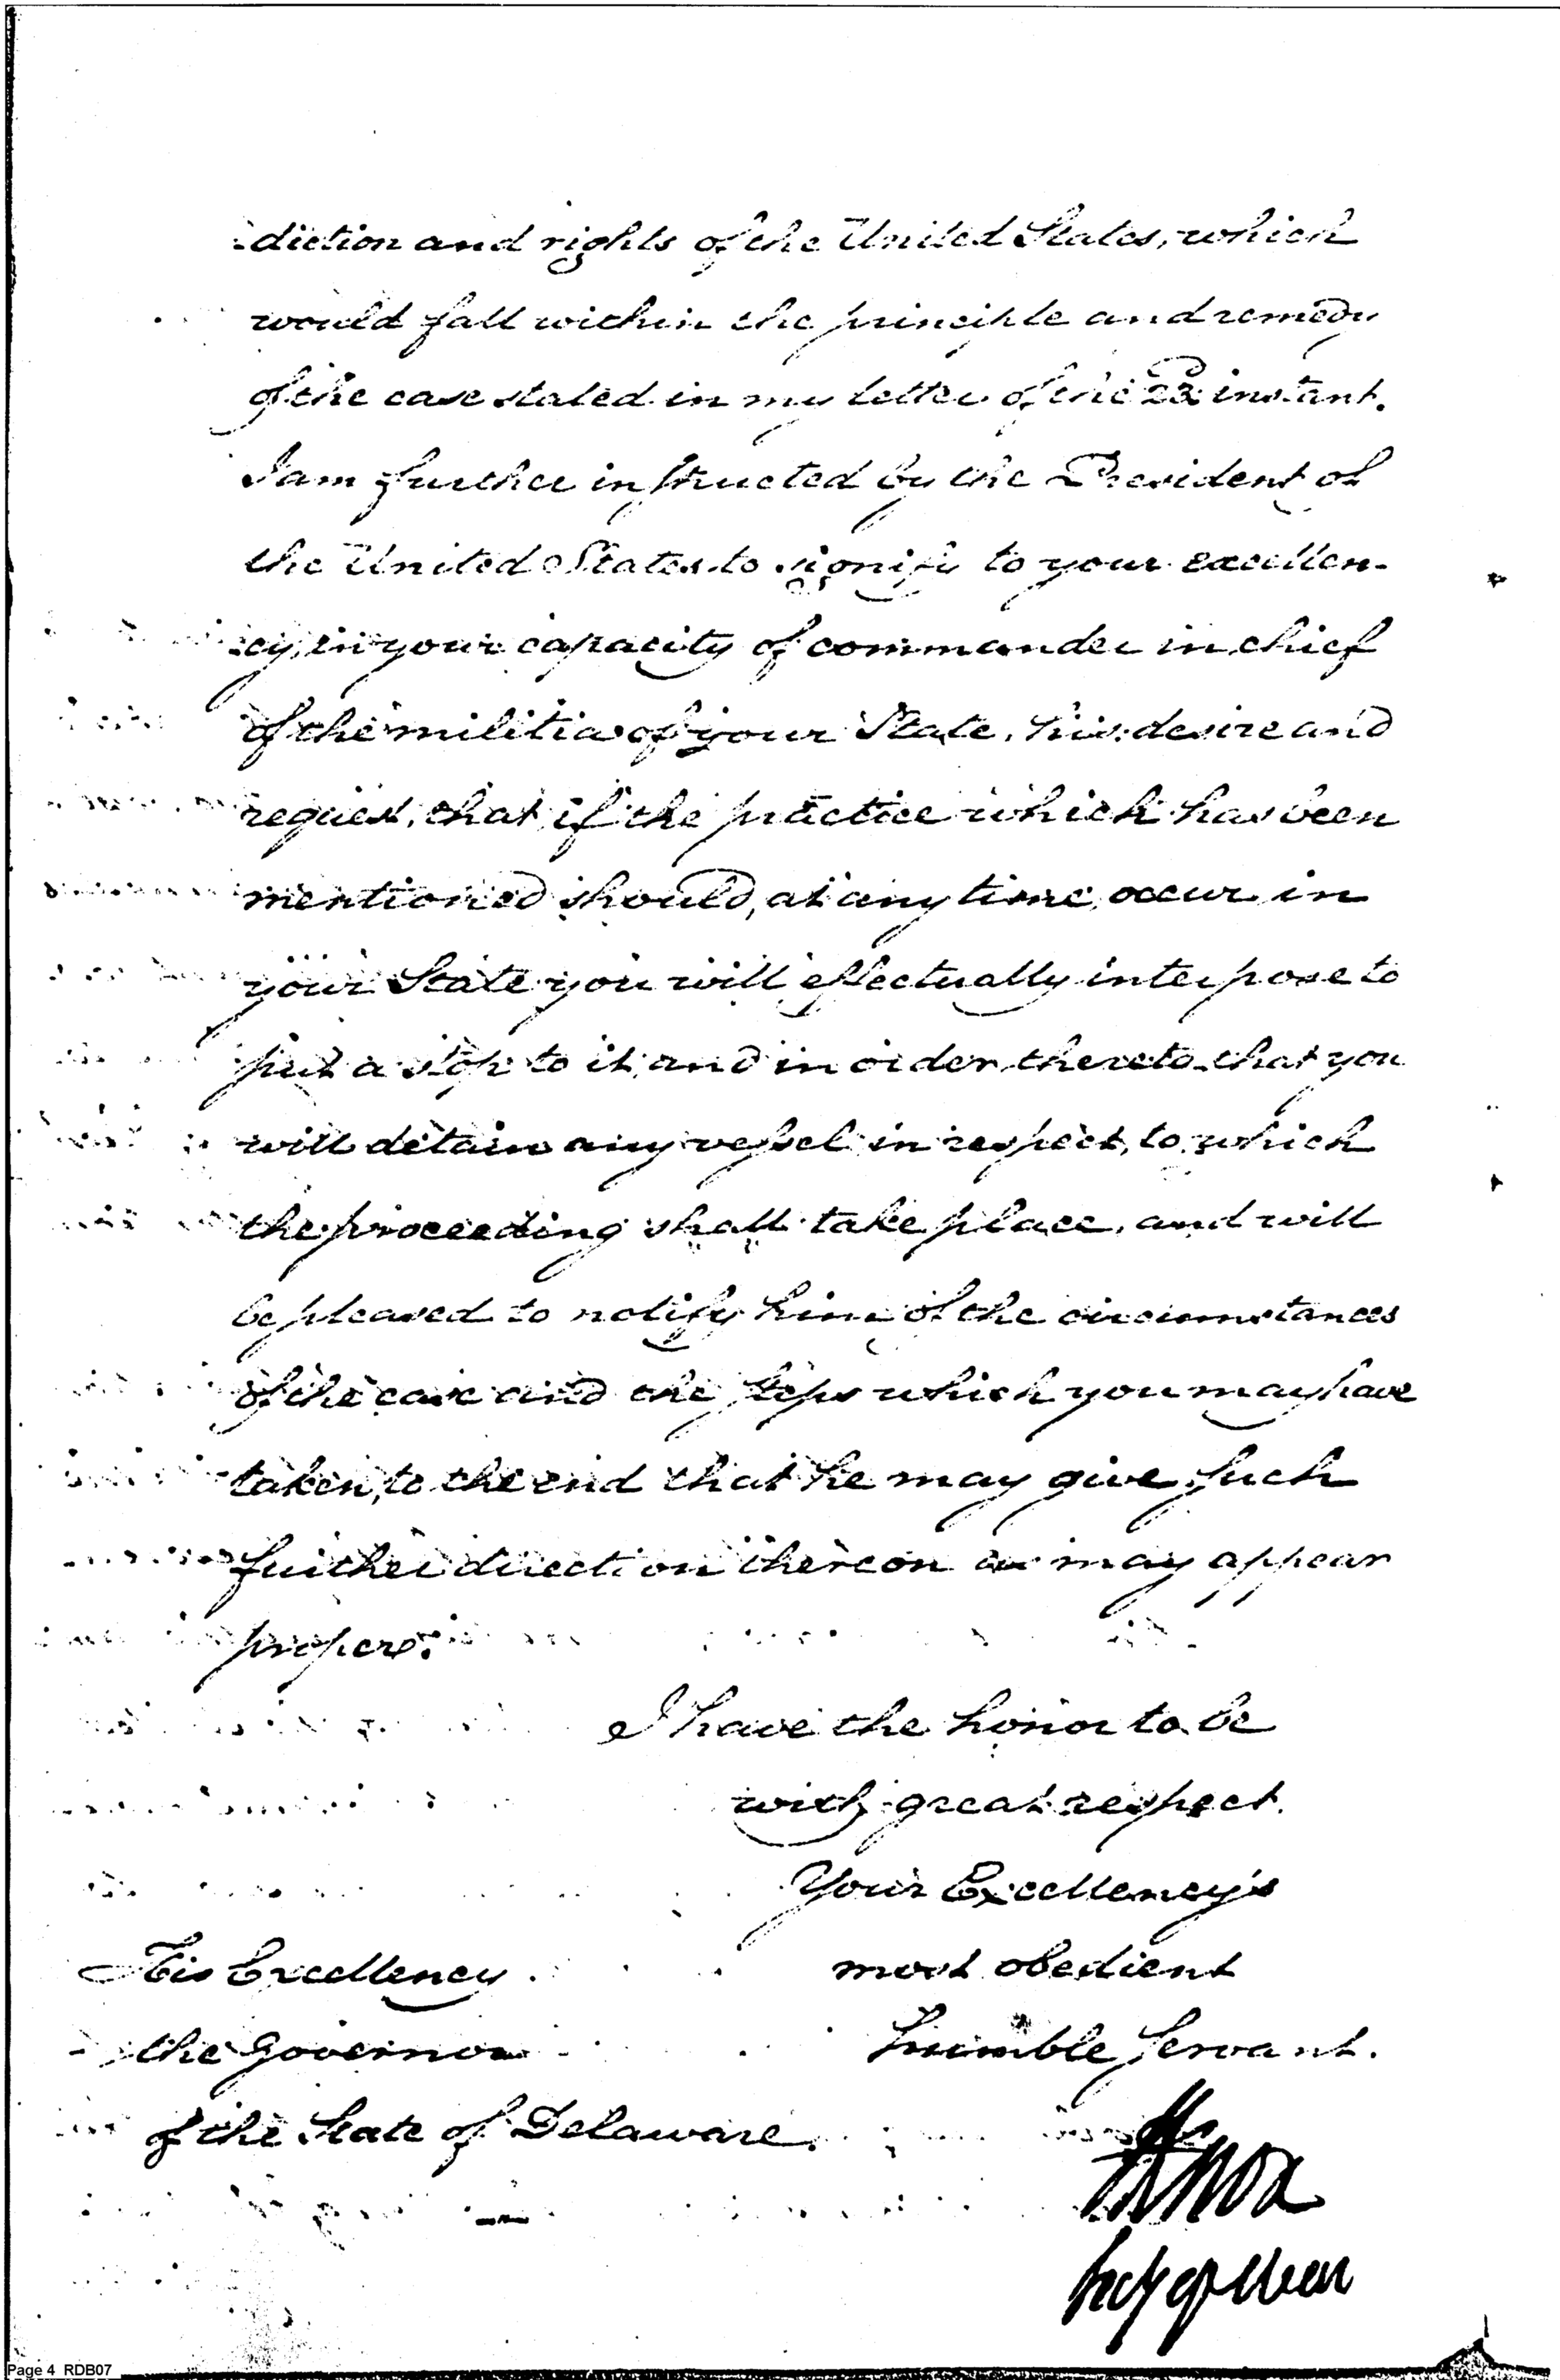 -diction and rights of the United States, which
would fall within the principle and remedy
of the case stated in my letter of the 22 instant.
I am further instructed by the President of
the United States to signify to your excellen-
-cy, in your capacity of commander in chief
of the militia of your State, his desire and
request, that if the practice which has been
mentioned should, at any time, occur in
your State you will effectually interpose to
put a stop to it, and in order thereto that you
will detain any vessel in respect, to which
the proceeding shall take place, and will
be pleased to notify him of the circumstances
of the case and the steps which you may have
taken, to the end that he may give such
further direction thereon as may appear
proper.
I have the honor to be
with great respect.
Your Excellency's
most obedient
humble Servant.
His Excellency
the Governor
of the State of Delaware.
H Knox
Secy of War
Page 4 RDB07